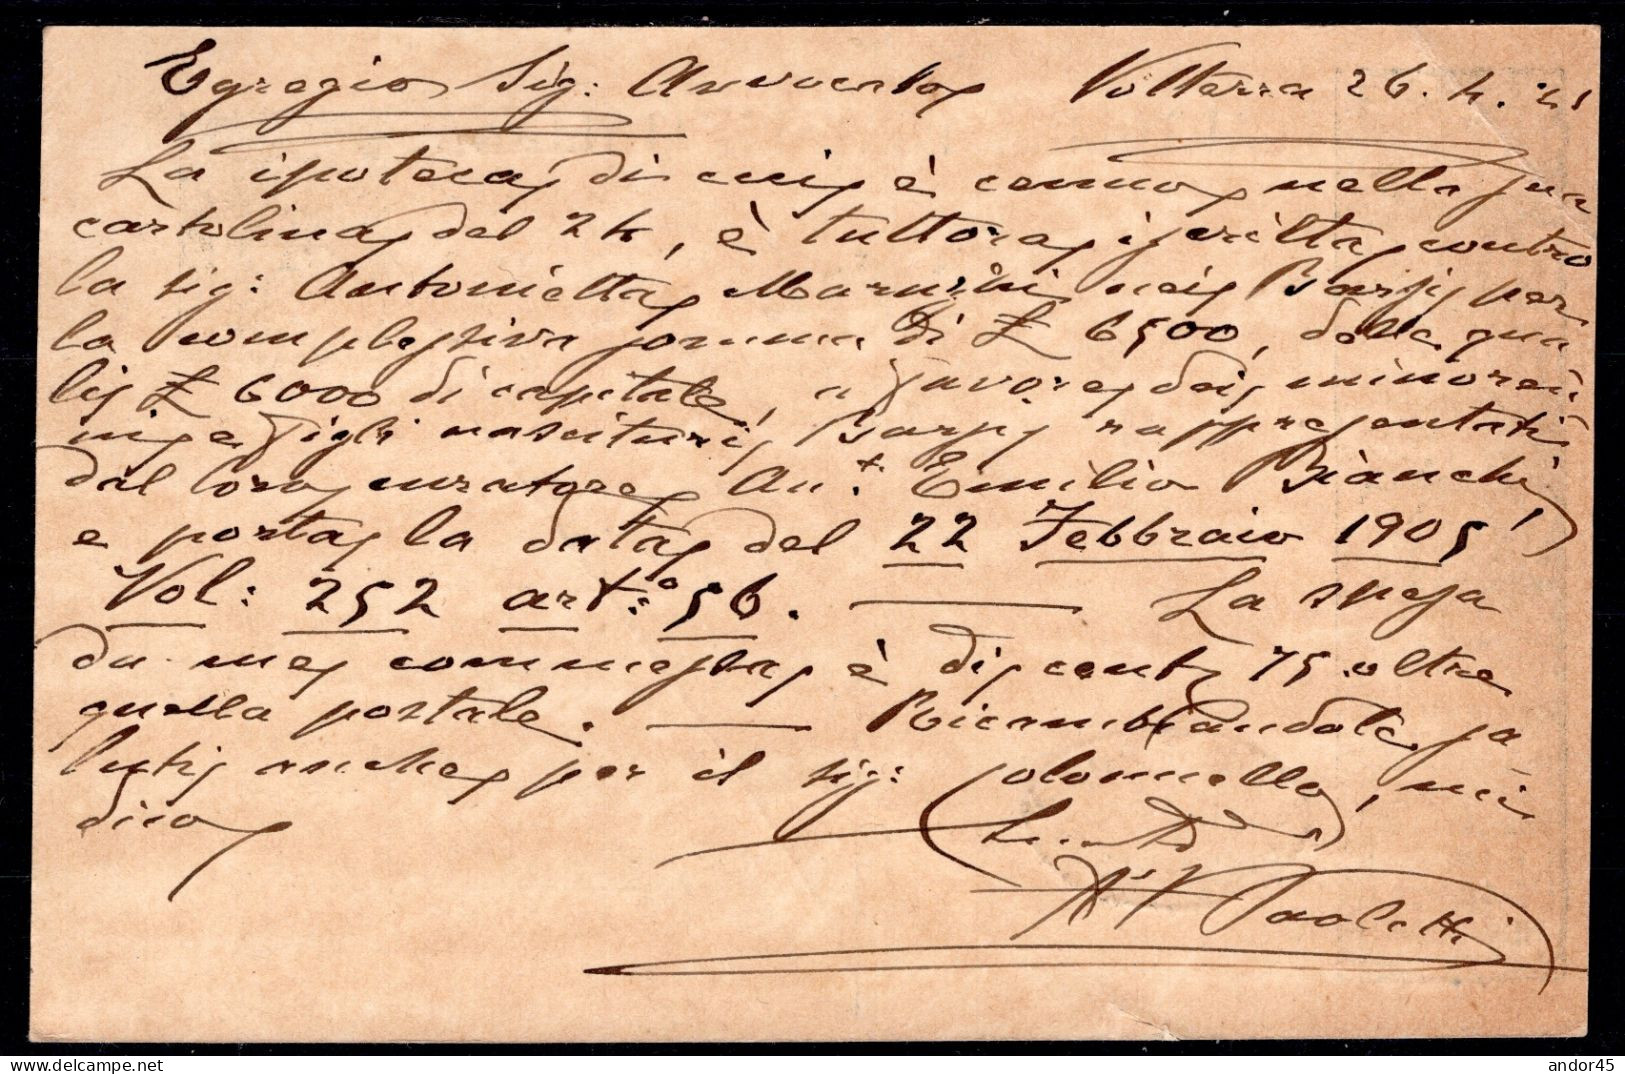 Egregio Sig: Avvocato Volterra 26.4.21
La ipoteca, di cui è cenno nella sua
cartolina del 24, è tuttora iscritta contro
la sig: Antonietta nei Barsi per
la complessiva somma di £ 6500, delle qua
li £ 6000 di capitale, a favore dei minoren
ni e figli nascituri Barsi rappresentati
dal loro curatore Avv.t Emilio Bianchi
e porta la data del 22 Febbraio 1905
Vol: 252 art:o 56. La spesa
da me commessa è di cent 75 oltre
quella postale. Ricambiandole sa
luti anche per il sig: colonnello, mi
dico
Paoletti
delcampe.net
andor45